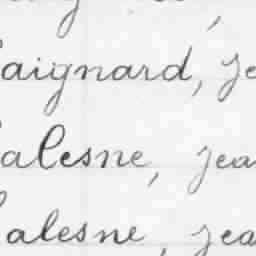 aignard, je
alesne, jea
alesne, jea